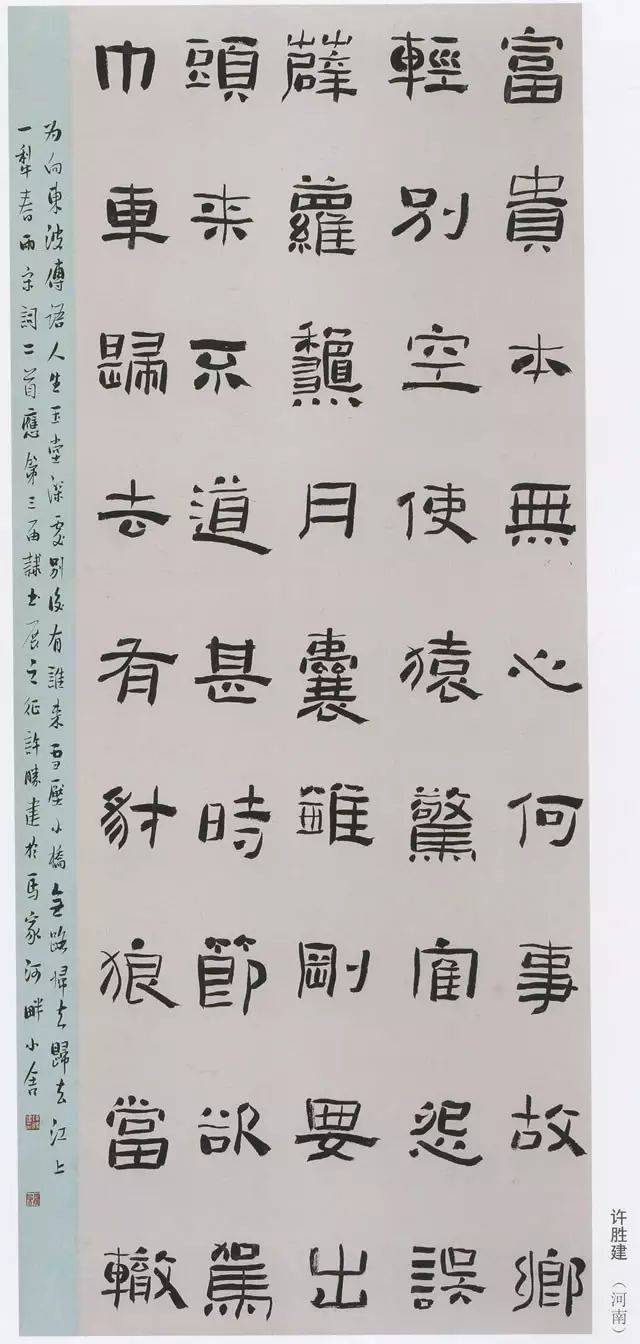 富貴本無心何事故鄉
輕別空使猿驚隺怨誤
薜蘿龝月囊錐剛要出
頭来不道甚時節欲駕
巾車歸去有豺狼當轍
为向東坡傳语人在玉堂深處別後有誰来雪壓小橋無路帰去歸去江上
一犁春雨宋詞二首應第三届隸书展之征許勝建於馬家河畔小舍
许胜建（河南）